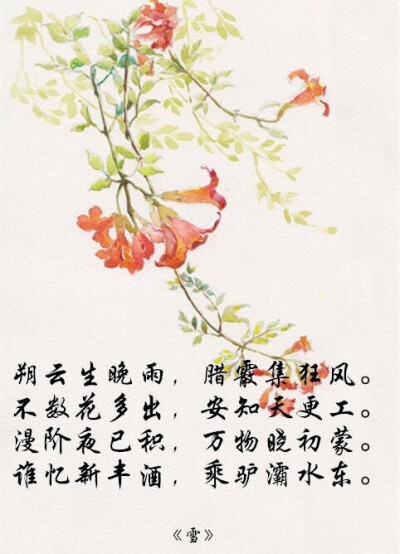 朔云生晚雨，腊霰集狂风。
不数花多出，安知天更工。
漫阶夜已积，万物晓初蒙。
谁忆新丰酒，乘驴灞水东。
《雪》